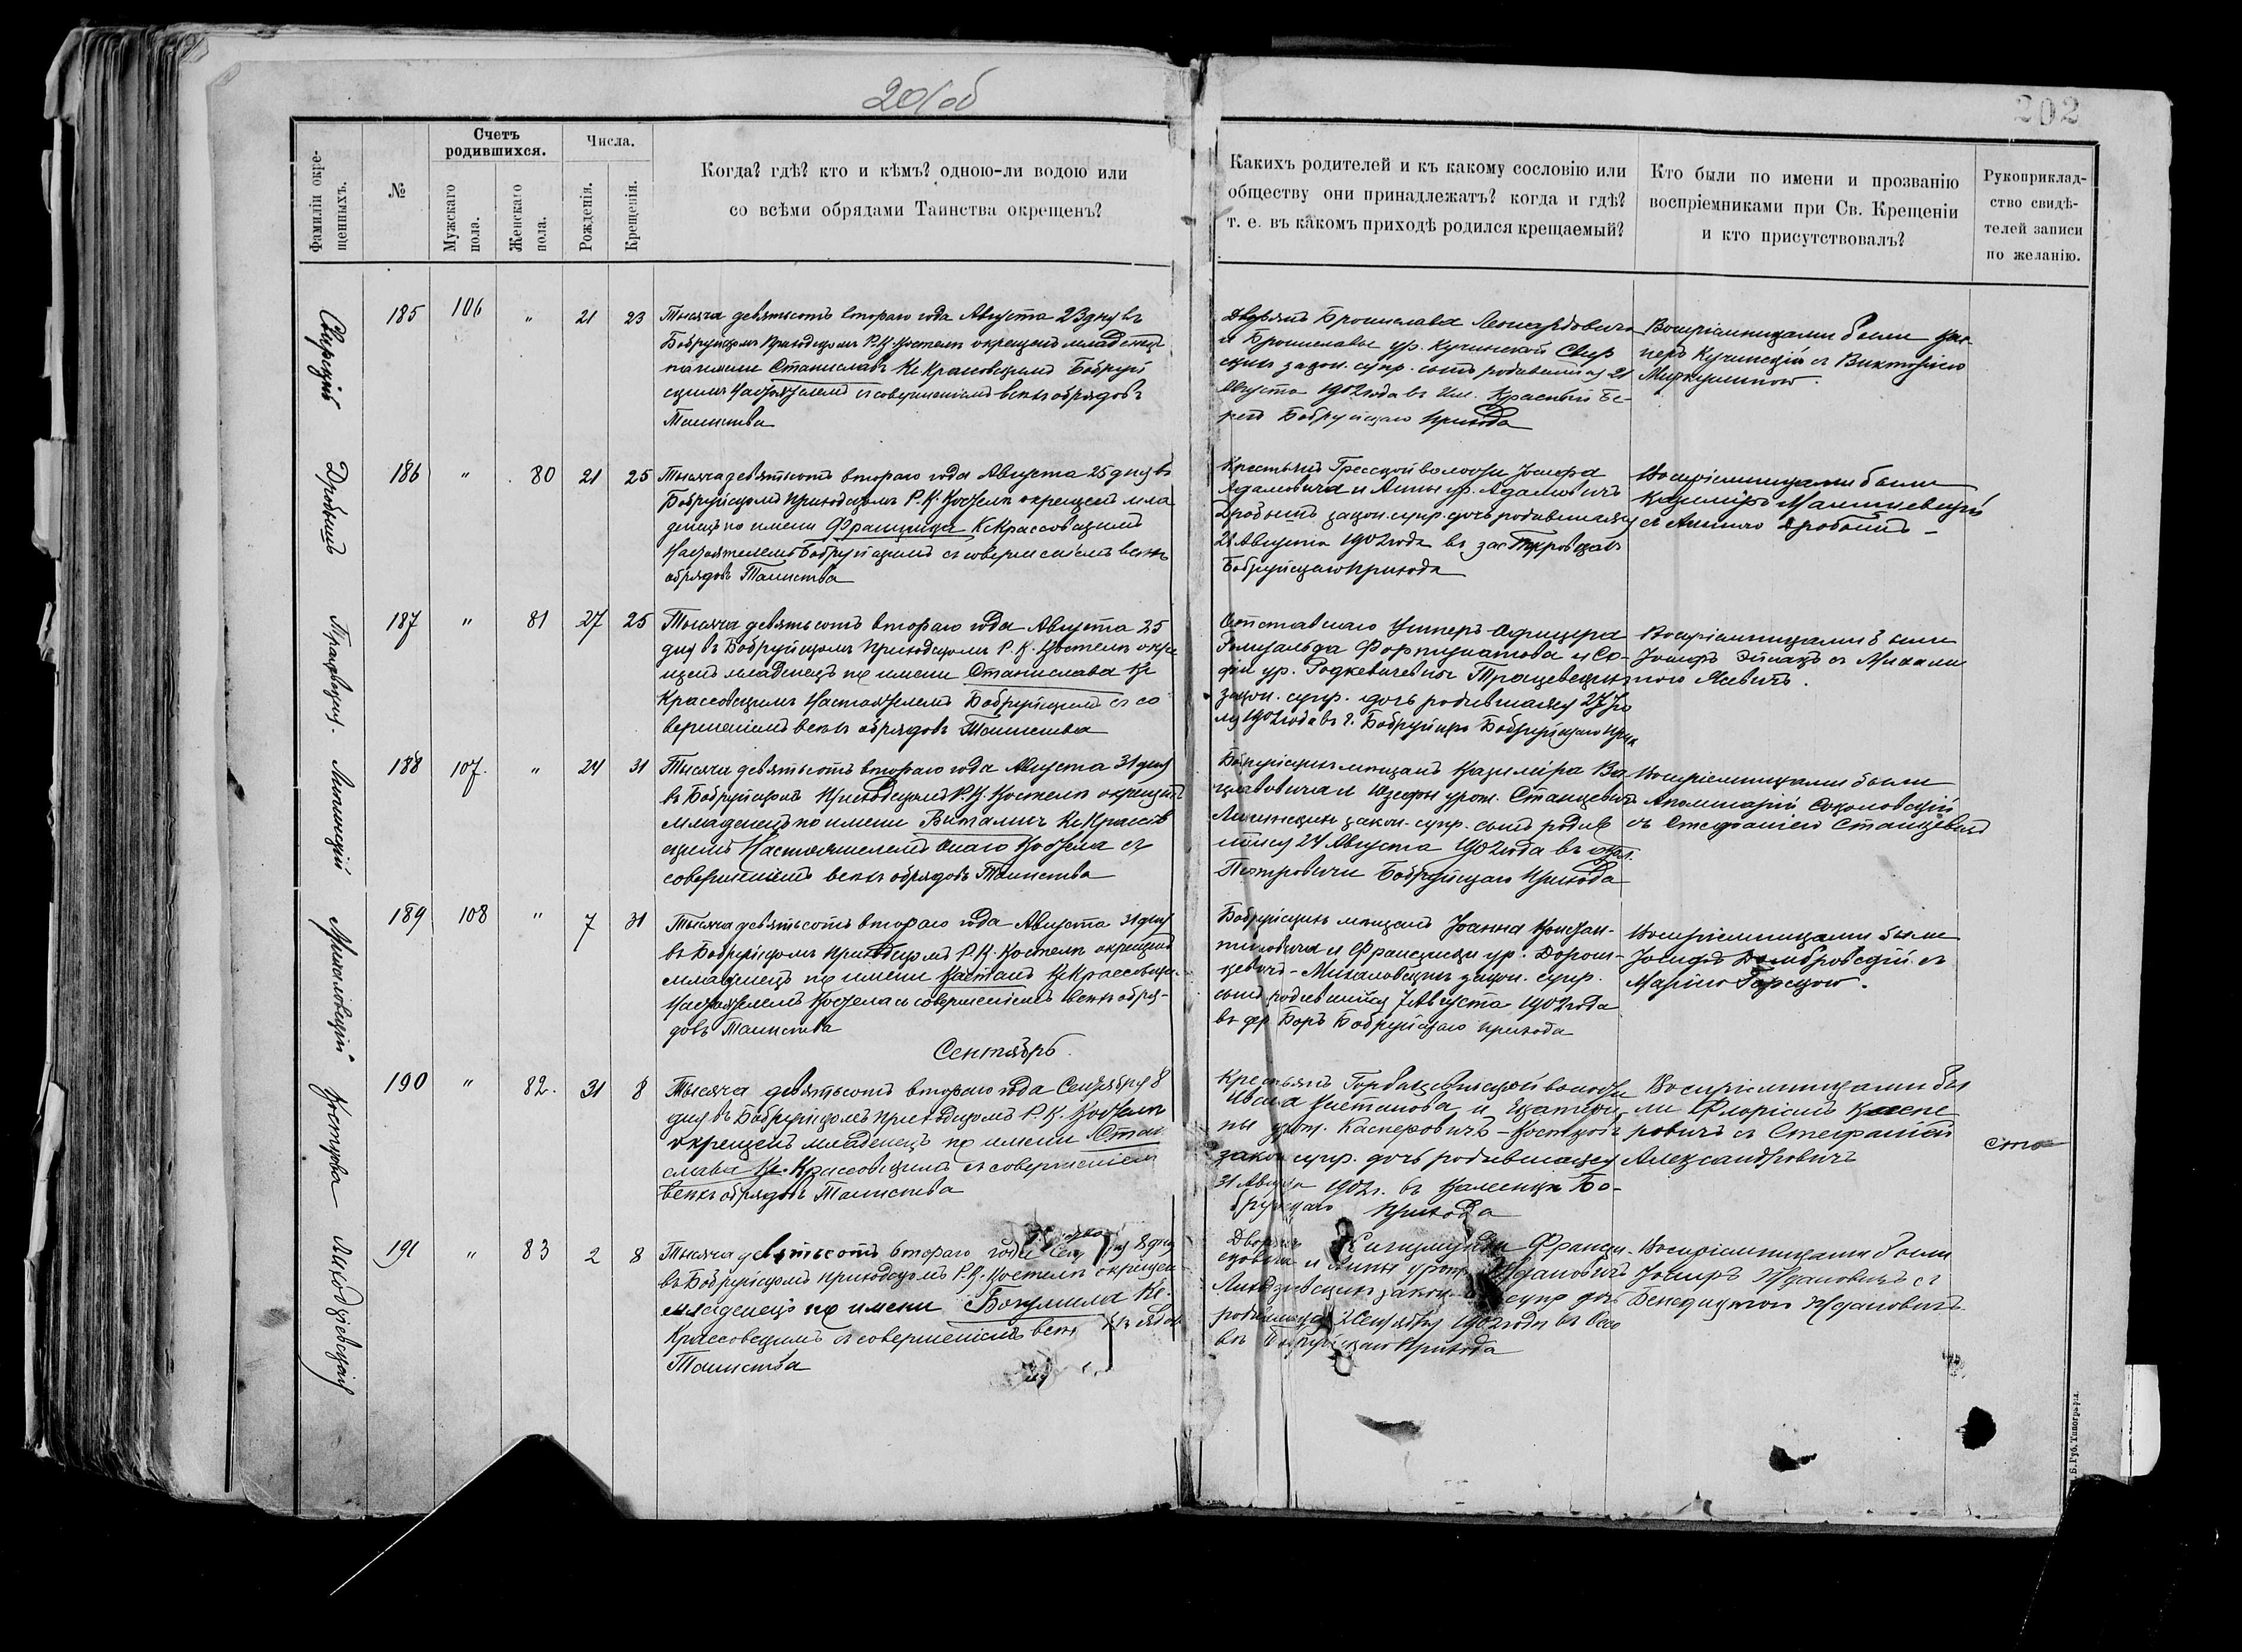 201об
202
Фамиліи окре-
щенныхъ.
№
Счетъ
родившихся.
Мужскаго
пола.
Женскаго
пола.
Числа.
Рожденія.
Крещенія.
Когда? гдѣ? кто и кѣмъ? одною-ли водою или
со всѣми обрядами Таинства окрещенъ?
Каких родителей и къ какому сословію или
обществу они принадлежатъ? когда и гдѣ?
т. е. въ какомъ приходѣ родился крещаемый?
Кто были по имени и прозванію
воспріемниками при Св. Крещеніи
и кто присутствовалъ?
Рукоприклад-
ство свидѣ-
телей записи
по желанію.
Свирскій
185 106 " 21 23
Тысяча девятьсотъ второго года Августа 23 дня въ
Бобруйскомъ Приходскомъ Р. К. Костелѣ окрещенъ младенецъ
по имени Станиславъ Кс Красовскимъ Бобруй
скимъ Настоятелемъ съ совершеніемъ всѣхъ обрядовъ
Таинства
Дворянъ Бронислава Леонардовича
и Брониславы ур. Кучинской Свир
скихъ закон. супр. сынъ родившійся 21
Августа 1902 года въ им. Красный Бе-
регъ Бобруйскаго прихода
Воспріемниками были
Кучинскій съ Викторіею
Дробышъ
186 " 80 21 25
Тысяча девятьсотъ второго года Августа 25 дня въ
Бобруйскомъ Приходскомъ Р. К. Костелѣ окрещенъ мла
денецъ по имени Франциска Кс Красовскимъ
Настоятелемъ Бобруйскимъ съ совершеніемъ всѣхъ
обрядовъ Таинства
Крестьянъ Гресской волости Іосифа
Адамовича и Анны ур. Адамовичъ
Дробышъ закон. супр. дочь родившаяся
21 Августа 1902 года въ
Бобруйскаго прихода
Воспріемниками были
Казиміръ
съ Анною Дробышъ
187 " 81 27 25
Тысяча девятьсотъ второго года Августа 25
дня въ Бобруйскомъ Приходскомъ Р. К. Костелѣ окре
щенъ младенецъ по имени Станислава Кс
Красовскимъ Настоятелемъ Бобруйскимъ съ со
вершеніемъ всѣхъ обрядовъ Таинства
Отставнаго Унтеръ-Офицера
Ромуальда Фортунатова и Со-
фіи ур. Родкевичевны
закон. супр. дочь родившаяся 27 Ію
ля 1902 года въ г. Бобруйскѣ Бобруйскаго прих
Воспріемниками были
Іосифъ съ
Липинскій
188 107. " 24 31
Тысяча девятьсотъ второго года Августа 31 дня
въ Бобруйскомъ Приходскомъ Р. К. Костелѣ окрещенъ
младенецъ по имени Виталисъ Кс Красов
скимъ Настоятелемъ онаго Костела съ
совершеніемъ всѣхъ обрядовъ Таинства
Бобруйскихъ мѣщанъ Казиміра Ва
цлавовича и Юзефы урож. Станкевичъ
Липинскихъ закон. супр. сынъ родив
шійся 24 Августа 1902 года въ
Петровичи Бобруйскаго Прихода
Воспріемниками были
Аполинарій Соколовскій
съ Стефаніею Станкевичъ
Михаловскій
189 108 " 7 31
Тысяча девятьсотъ второго года Августа 31 дня
въ Бобруйскомъ Приходскомъ Р. К. Костелѣ окрещенъ
младенецъ по имени Каетанъ Кс Красовскимъ
Настоятелемъ Костела съ совершеніемъ всѣхъ обря-
довъ Таинства
Бобруйскихъ мѣщанъ Іоанна Констан-
тиновича и Франциски ур. Дорош-
кевичъ-Михаловскихъ закон. супр.
сынъ родившійся 7 Августа 1902 года
въ фер Боръ Бобруйскаго прихода
Воспріемниками были
Іосифъ Домбровскій съ
Маріею
Сентябрь.
Костцова
190 " 82. 31 8
Тысяча девятьсотъ второго года Сентября 8
дня въ Бобруйскомъ Приходскомъ Р. К. Костелѣ
окрещенъ младенецъ по имени Стани
слава Кс. Красовскимъ съ совершеніемъ
всѣхъ обрядовъ Таинства
Крестьянъ Горбацевичской волости
Ивана и Екатери
ны урож. Касперовичъ-
закон супр. дочь родившаяся
31 Августа 1902 г. въ Каменкѣ Бо-
бруйскаго Прихода
Воспріемниками бы
ли Флоріанъ Каспе
ровичъ съ Стефаніей
Александровичъ
191 " 83 2 8
Тысяча девятьсотъ второго года Сен 8 дня
въ Бобруйскомъ Приходскомъ Р. К. Костелѣ окрещенъ
младенецъ по имени Богумила Кс.
Красовскимъ съ совершеніемъ всѣхъ
Таинства
Дворянъ Сигизмунда Франци
сковича и Анны урож. Ждановичъ
закон супр дочь
родившаяся 2 Сентября 1902 года въ
Бобруйскаго Прихода
Воспріемниками были
Іосифъ Ждановичъ съ
Бенедиктою Ждановичъ